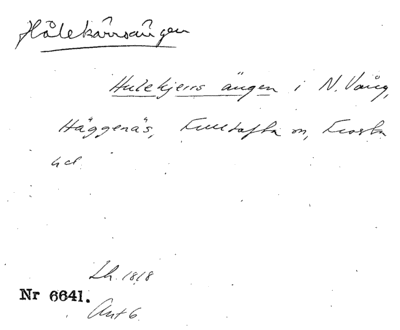 Hålekärrsängen
Hulekjerrs ängen i N. Vång,
Häggenäs, Fulltofta sn, Frosta
hd
Lh. 1818
Nr 6641.
Akt 6